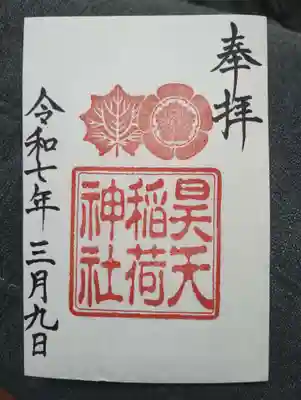 奉拝
昊天
稲荷
神社
令和七年 三月九日